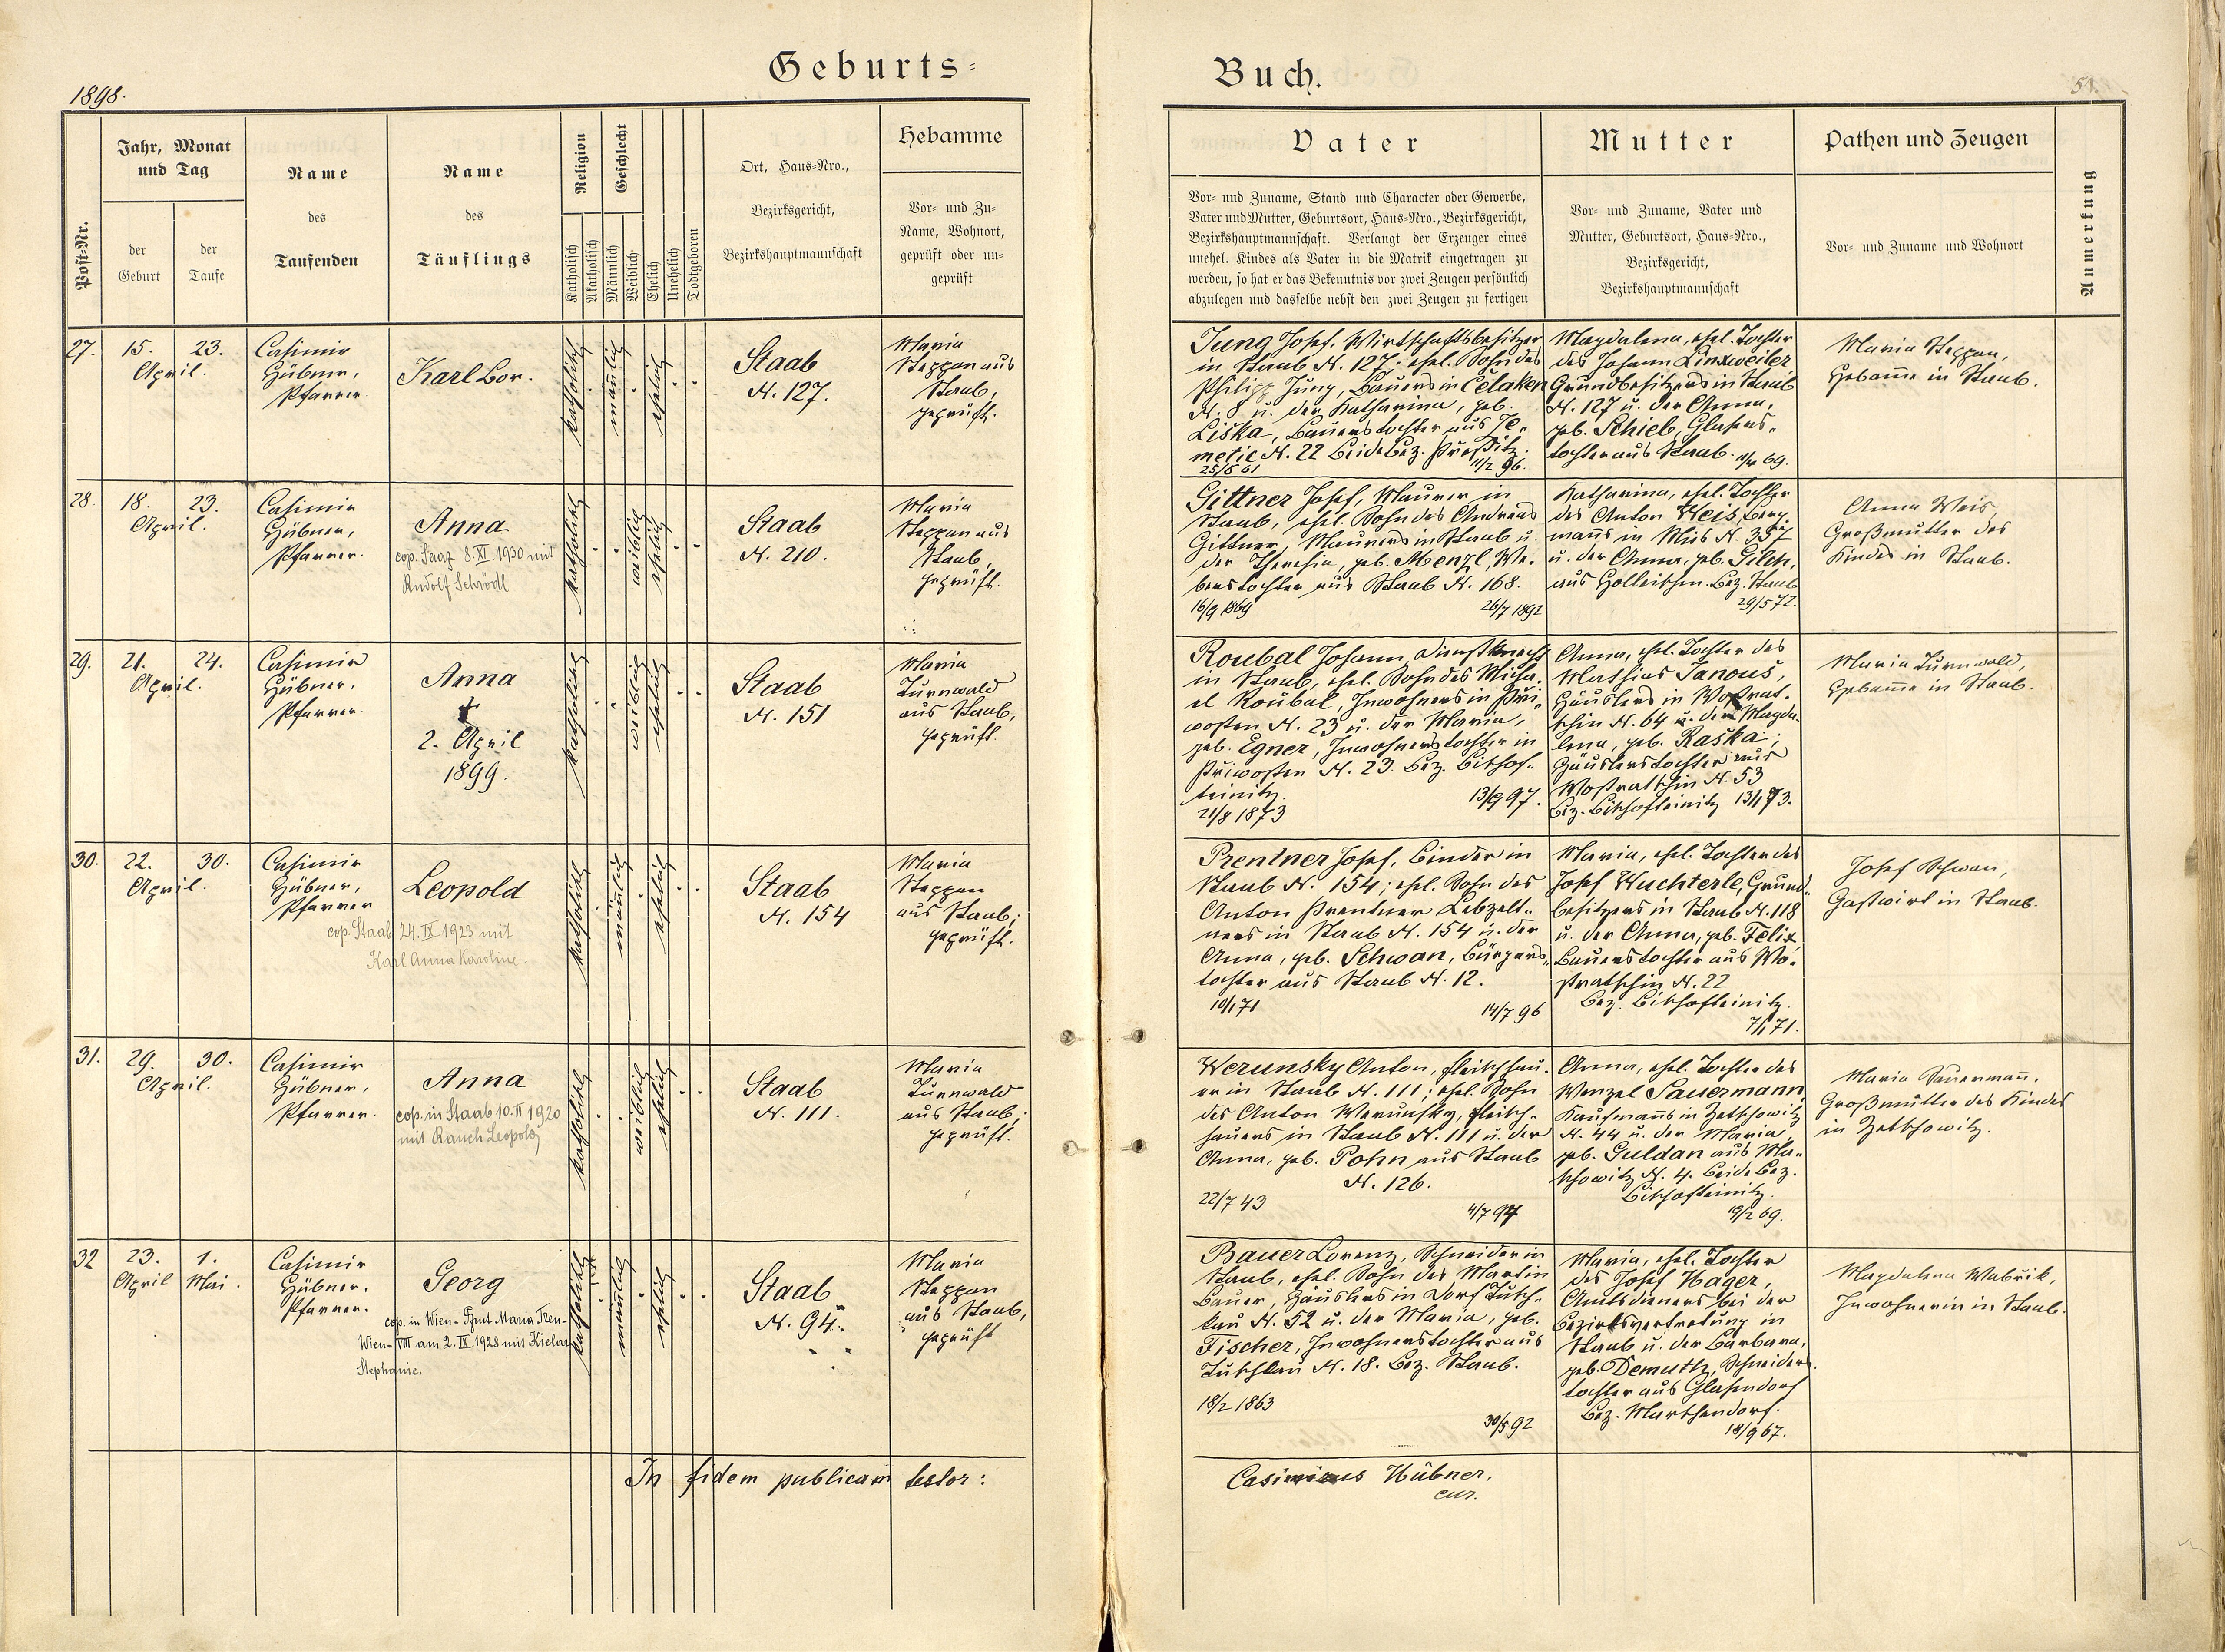 1898.
Geburts-
Buch.
51.
Post-Nr.
Jahr, Monat
und Tag
der
Geburt
der
Taufe
Name
des
Taufenden
Name
des
Täuflings
Religion
Katholisch
Akatholisch
Geschlecht
Männlich
Weiblich
Ehelich
Unehelich
Todtgeboren
Ort, Haus-Nro.,
Bezirksgericht,
Bezirkshauptmannschaft
Hebamme
Vor- und Zu-
Name, Wohnort,
geprüft oder un-
geprüft
Vater
Vor- und Zuname, Stand und Character oder Gewerbe,
Vater und Mutter, Geburtsort, Haus-Nro., Bezirksgericht,
Bezirkshauptmannschaft. Verlangt der Erzeuger eines
unehel. Kindes als Vater in die Matrik eingetragen zu
werden, so hat er das Bekenntnis vor zwei Zeugen persönlich
abzulegen und dasselbe nebst den zwei Zeugen zu fertigen
Mutter
Vor- und Zuname, Vater und
Mutter, Geburtsort, Haus-Nro.,
Bezirksgericht,
Bezirkshauptmannschaft
Pathen und Zeugen
Vor- und Zuname und Wohnort
Anmerkung
27.
15. 23.
April.
Casimir
Hübner,
Pfarrer
Karl Bor.
katholisch
männlich
ehelich
Staab
N. 127.
Maria
Steppan aus
Staab,
geprüft.
Jung Josef, Wirtschaftsbesitzer
in Staab N. 127; ehel. Sohn des
Philipp Jung, Bauers in Čelaken
N. 8 u. der Katharina, geb.
Liška, Bauerstochter aus Te-
metic N. 22 beide Bez. Prestitz.
25/5 61 11/2 96.
Magdalena, ehel. Tochter
des Johann Linxweiler
Grundbesitzers in Staab
N. 127 u. der Anna,
geb. Schieb, Glasers-
tochter aus Staab. 69.
Maria Steppan,
Hebamme in Staab.
28.
18. 23.
April.
Casimir
Hübner,
Pfarrer.
Anna
cop. Saaz 8. XI. 1930 mit
Rudolf Schrödl
katholisch
weiblich
ehelich
Staab
N. 210.
Maria
Steppan aus
Staab,
geprüft.
Gittner Josef, Maurer in
Staab, ehel. Sohn des Andreas
Gittner, Maurers in Staab u.
der Theresia, geb. Menzl, We-
berstochter aus Staab N. 168.
16/9 1869 26/7 1892
Katharina, ehel. Tochter
des Anton Weis, Berg-
manns in Mies N. 357
u. der Anna, geb. Gilch,
aus Holleischen. Bez. Staab
29/5 72.
Anna Weis,
Großmutter des
Kindes in Staab.
29.
21. 24.
April.
Casimir
Hübner,
Pfarrer.
Anna
†
2. April
1899.
katholisch
weiblich
ehelich
Staab
N. 151
Maria
Turnwald
aus Staab,
geprüft.
Roubal Johann, Dienstknecht
in Staab, ehel. Sohn des Micha-
el Roubal, Inwohners in Pri-
wosten N. 23 u. der Maria,
geb. Egner, Inwohnerstochter in
Priwosten N. 23. Bez. Bischof-
teinitz.
21/8 1873 13/9 97.
Anna, ehel. Tochter des
Mathias Janouš,
Häuslers in Wostrat-
schin N. 64 u. der Magda-
lena, geb. Raška;
Häuslerstochter aus
Wostratschin N. 53
Bez. Bischofteinitz 13/1 73.
Maria Turnwald,
Hebamme in Staab.
30.
22. 30.
April.
Casimir
Hübner,
Pfarrer
Leopold
cop. Staab 24. IX 1923 mit
Karl Anna Karoline.
katholisch
männlich
ehelich
Staab
N. 154
Maria
Steppan
aus Staab,
geprüft.
Prentner Josef, Binder in
Staab N. 154; ehel. Sohn des
Anton Prentner Lebzelt-
ners in Staab N. 154 u. der
Anna, geb. Schwan, Bürgers-
tochter aus Staab N. 12.
10/1 71 14/7 96
Maria, ehel. Tochter des
Josef Wuchterle, Grund-
besitzers in Staab N. 118
u. der Anna, geb. Felix
Bauerstochter aus Wo-
stratschin N. 22
Bez. Bischofteinitz.
7/1 71.
Josef Schwan,
Gastwirt in Staab.
31.
29. 30.
April.
Casimir
Hübner,
Pfarrer.
Anna
cop. in Staab 10. II 1920
mit Rauch Leopold
katholisch
weiblich
ehelich
Staab
N. 111.
Maria
Turnwald
aus Staab,
geprüft.
Werunsky Anton, Fleischhau-
er in Staab N. 111; ehel. Sohn
des Anton Werunsky, Fleisch-
hauers in Staab N. 111 u. der
Anna, geb. Pohn aus Staab
N. 126.
22/7 43 4/7 94
Anna, ehel. Tochter des
Wenzel Sauermann
Kaufmanns in Zetschowitz
N. 44 u. der Maria,
geb. Guldan aus Ma-
schowitz N. 4. beide Bez.
Bischofteinitz.
19/2 69.
Maria Sauermann,
Großmutter des Kindes
in Zetschowitz.
32
23. 1.
April Mai.
Casimir
Hübner,
Pfarrer.
Georg
cop. in Wien-Pfmt Maria Tren-
Wien-VIII am 2. IX. 1928 mit Kielar
Stephanie.
katholisch
männlich
ehelich
Staab
N. 94.
Maria
Steppan
aus Staab,
geprüft
Bauer Lorenz, Schneider in
Staab, ehel. Sohn des Martin
Bauer, Häuslers in Dorf Tusch-
kau N. 52 u. der Maria, geb.
Fischer, Inwohnerstochter aus
Tuschkau N. 18. Bez. Staab.
18/2 1863
30/5 92
Maria, ehel. Tochter
des Josef Hager,
Amtsdieners bei der
Bezirksvertretung in
Staab u. der Barbara,
geb. Demuth, Schneiders-
tochter aus Glasendorf
Bez.
18/9 67.
Magdalena Wabrik,
Inwohnerin in Staab.
In fidem publicam testor:
Casimirus Hübner,
cur.